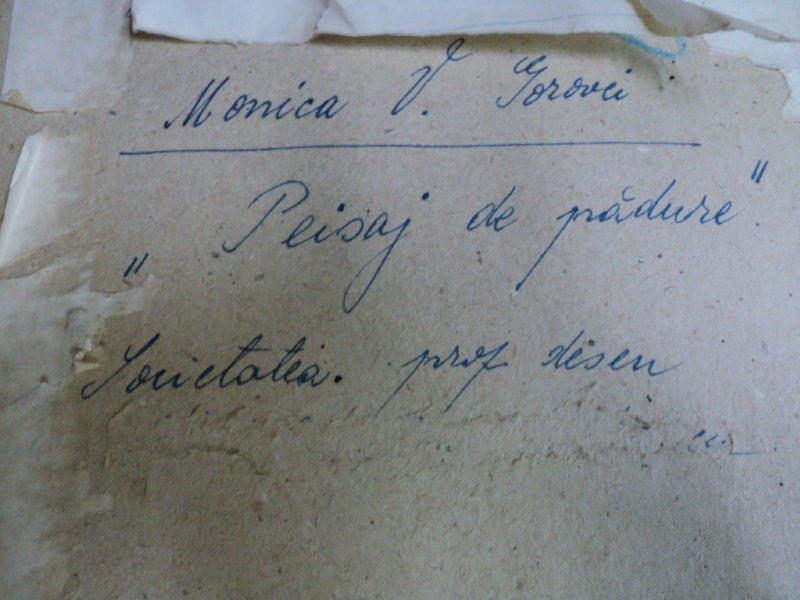 Monica V. Gorovei
"Peisaj de pădure".
Societatea. prof desen